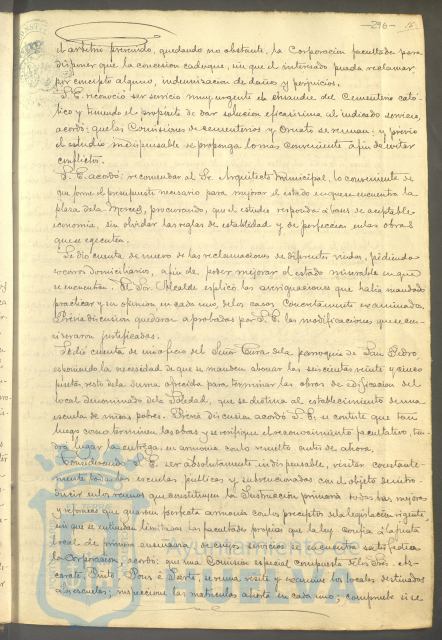 -296-
el arbitrio prevenido, quedando no obstante, la Corporación facultada para
disponer que la concesión caduque, sin que el interesado pueda reclamar
por concepto alguno, indemnización de daños y perjuicios.
S. E. reconoció ser servicio muy urgente el ensanche del Cementerio cató-
lico y teniendo el propósito de dar solución eficacísima al indicado servicio,
acordó: que las Comisiones de Cementerios y Ornato se reunan: y previo
el estudio indispensable se proponga lo mas conveniente a fin de evitar
conflictos.
S. E. acordó: recomendar al Sr. Arquitecto Municipal, lo conveniente de
que forme el presupuesto necesario para mejorar el estado en que se encuentra la
plaza de la Merced, procurando, que el estudio responda a bases de aceptable
economía, sin olvidar las reglas de estabilidad y de perfección en las obras
que se egecuten.
Se dio cuenta de nuevo de las reclamaciones de diferentes viudas, pidiendo
socorros domiciliarios, a fin de poder mejorar el estado miserable en que
se encuentran. El Sor. Alcalde esplicó las averiguaciones que había mandado
practicar y su opinion en cada uno, de los casos concretamente examinados.
Previa discusión quedaron aprobadas por S. E. las modificaciones que se con-
sideraron justificadas.
Se dió cuenta de un oficio del Señor Cura de la parroquia de San Pedro,
esponiendo la necesidad de que se manden abonar las seiscientas veinte y cinco
pesetas resto de la suma ofrecida para terminar las obras de edificación del
local denominado de la Piedad, que se destina al establecimiento de una
escuela de niños pobres. Previa discusión acordó S. E. se conteste que tan
luego como terminen las obras y se verifique el reconocimiento facultativo, ten-
drá lugar la entrega, en armonía con lo resuelto antes de ahora.
Considerando S. E. ser absolutamente indispensable, visitar constante-
mente todas las escuelas públicas y subvencionadas con el objeto de intro-
ducir en los ramos que constituyen la Instrucción primaria todas las mejoras
y reformas que guarden perfecta armonía con los preceptos de la legislación vigente,
sin que se entiendan limitadas las facultades propias que la ley confía a la Junta
local de primera enseñanza de cuyos servicios se encuentra satisfecha
la Corporación; acordó: que una Comisión especial compuesta de los Sres.
Pinto, Pons é Sarto, se reuna visite y examine los locales destinados
a las escuelas; inspeccione las matrículas abiertas en cada una; compruebe si se
Ayuntamiento de
HUELVA